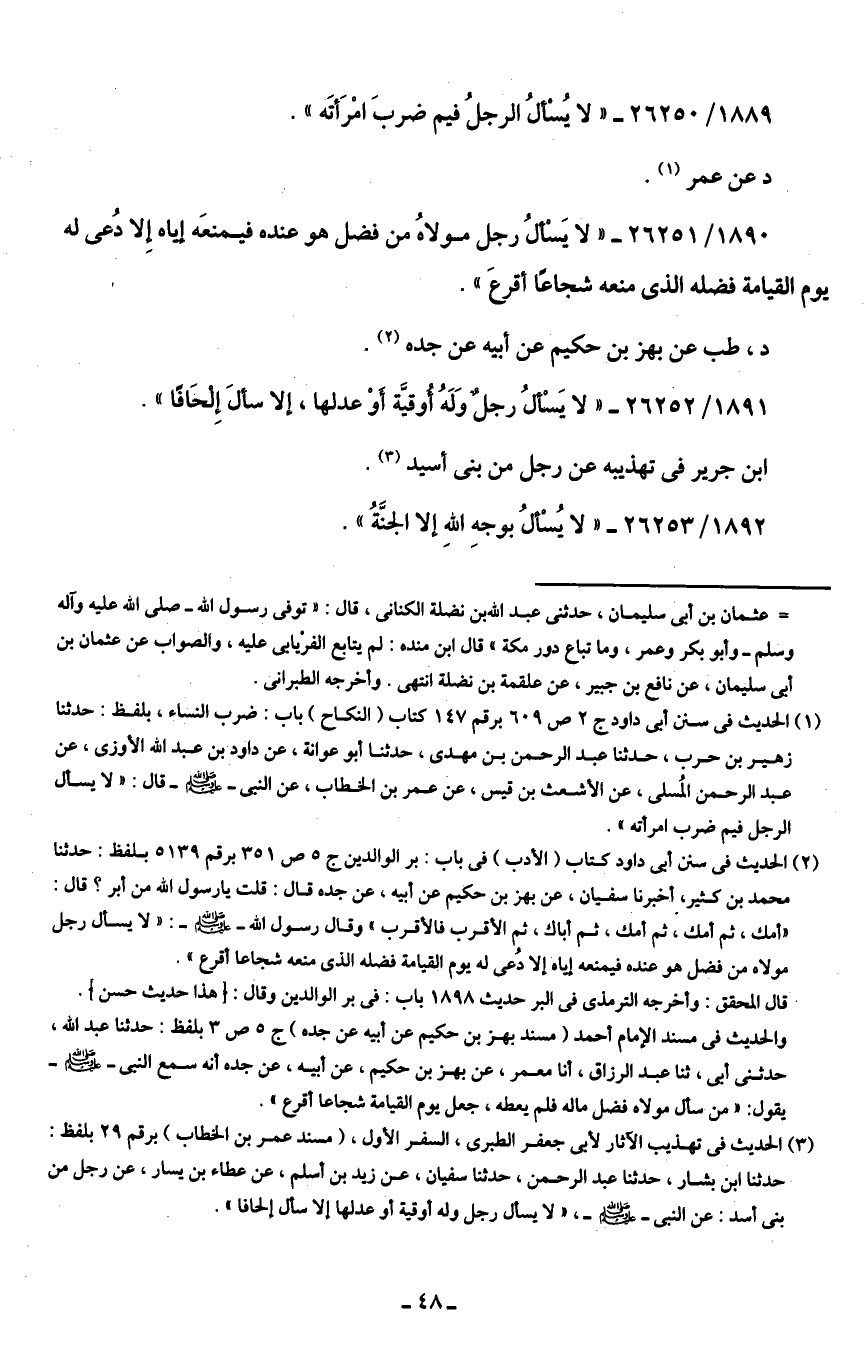 ١٨٨٩/ ٢٦٢٥٠ ـ « لا يُسْأَلُ الرجلُ فيم ضربَ امْرَأتَه » .
د عن عمر (١) .
١٨٩٠/ ٢٦٢٥١ ـ « لا يَسْأَلُ رجل مولاهُ من فضل هو عنده فيمنعَه إياه إلا دُعى له
يوم القيامة فضله الذى منعه شجاعًا أقرعَ » .
د ، طب عن بهز بن حكيم عن أبيه عن جده (٢) .
١٨٩١/ ٢٦٢٥٢ ـ « لا يَسْأَلُ رجلٌ وَلَهُ أُوقيَّة أوْ عدلها ، إلا سألَ إِلْحَافًا » .
ابن جرير فى تهذيبه عن رجل من بنى أسيد (٣) .
١٨٩٢/ ٢٦٢٥٣ ـ « لا يُسْأَلُ بوجهِ اللهِ إلا الجنَّةُ » .
= عثمان بن أبى سليمان ، حدثنى عبد الله بن نضلة الكنانى ، قال : « توفى رسول الله ـ صلى الله عليه وآله
وسلم ـ وأبو بكر وعمر ، وما تباع دور مكة » قال ابن منده : لم يتابع الفرْيابى عليه ، والصواب عن عثمان بن
أبى سليمان ، عن نافع بن جبير ، عن علقمة بن نضلة انتهى . وأخرجه الطبرانى .
(١) الحديث فى سنن أبى داود ج ٢ ص ٦٠٩ برقم ١٤٧ كتاب ( النكاح ) باب : ضرب النساء ، بلفظ : حدثنا
زهير بن حرب ، حدثنا عبد الرحمن بن مهدى ، حدثنا أبو عوانة ، عن داود بن عبد الله الأوزى ، عن
عبد الرحمن المُسلى ، عن الأشعث بن قيس ، عن عمر بن الخطاب ، عن النبى ـ ﷺ ـ قال : « لا يسأل
الرجل فيم ضرب امرأته » .
(٢) الحديث فى سنن أبى داود كتاب ( الأدب ) فى باب : بر الوالدين ج ٥ ص ٣٥١ برقم ٥١٣٩ بلفظ : حدثنا
محمد بن كثير، أخبرنا سفيان ، عن بهز بن حكيم عن أبيه ، عن جده قال : قلت يارسول الله من أبر ؟ قال :
«أمك ، ثم أمك ، ثم أمك ، ثم أباك ، ثم الأقرب فالأقرب » وقال رسول الله ـ ﷺ ـ : « لا يسأل رجل
مولاه من فضل هو عنده فيمنعه إياه إلا دُعى له يوم القيامة فضله الذى منعه شجاعا أقرع » .
قال المحقق : وأخرجه الترمذى فى البر حديث ١٨٩٨ باب : فى بر الوالدين وقال : { هذا حديث حسن } .
والحديث فى مسند الإمام أحمد ( مسند بهز بن حكيم عن أبيه عن جده ) ج ٥ ص ٣ بلفظ : حدثنا عبد الله ،
حدثنى أبى ، ثنا عبد الرزاق ، أنا معمر ، عن بهز بن حكيم ، عن أبيه ، عن جده أنه سمع النبى ـ ﷺ ـ
يقول: « من سأل مولاه فضل ماله فلم يعطه ، جعل يوم القيامة شجاعا أقرع » .
(٣) الحديث فى تهذيب الآثار لأبى جعفر الطبرى ، السفر الأول ، ( مسند عمر بن الخطاب ) برقم ٢٩ بلفظ :
حدثنا ابن بشار ، حدثنا عبد الرحمن ، حدثنا سفيان ، عن زيد بن أسلم ، عن عطاء بن يسار ، عن رجل من
بنى أسد : عن النبى ـ ﷺ ـ ، « لا يسأل رجل وله أوقية أو عدلها إلا سأل إلحافا » .
ـ ٤٨ ـ